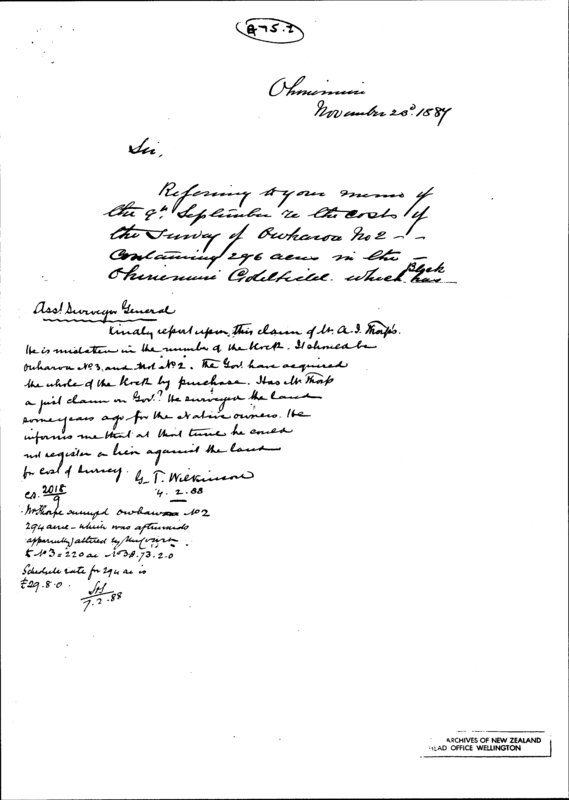 A75.2
Ohinemuri
November 23d. 1887
Sir,
Referring to your memo of
the 9th. September re the costs of
the survey of Owharoa No 2 - -
Containing 296 acres in the
Ohinemuri Goldfield. which Block has
Asst Surveyor General
Kindly report upon this claim of Mr. A. J. Thorp's.
He is mistaken in the number of the block. It should be
Owharoa No 3. and not No 2. The Govt. have acquired
the whole of the block by purchase. Has Mr Thorp
a just claim on Govt.? He surveyed the land
some years ago for the Native owners. He
informs me that at that time he could
not register a lien against the land
for cost of survey. G. T. Wilkinson
4. 2. 88
2018
9
Mr Thorpe surveyd Owharoa No 2
294 acre - which was afterwards
apparently altered by
to No 3 = 220 ac No 3B. 73. 2. 0
Schedule rate for 294 ac is
£29. 8. 0.
7. 2. 88
ARCHIVES OF NEW ZEALAND
HEAD OFFICE WELLINGTON